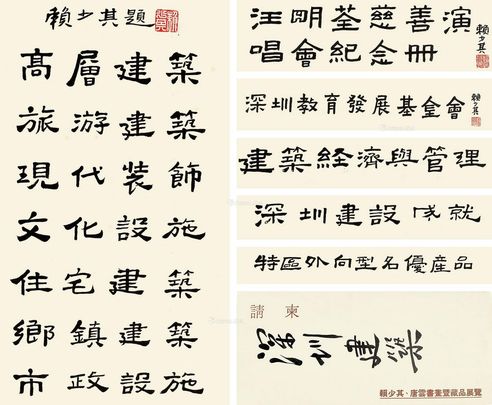 賴少其題
高層建築
旅游建築
現代裝飾
文化設施
住宅建築
鄉鎮建築
市政設施
汪明荃慈善演
唱會紀念冊
賴少其
深圳教育發展基金會
賴少其
建築經濟與管理
深圳建設成就
特區外向型名優産品
請柬
深圳建築
賴少其、唐雲書畫暨藏品展覽